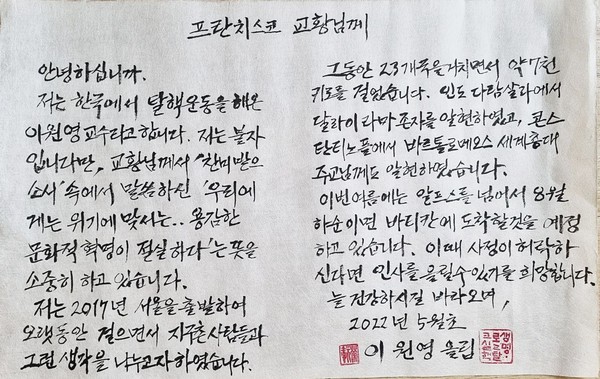 프란치스코 교황님께
안녕하십니까.
저는 한국에서 탈핵운동을 해온
이원영교수라고합니다. 저는 불자
입니다만, 교황님께서 '찬미받으
소서' 속에서 말씀하신 '우리에
게는 위기에 맞서는.. 용감한
문화적 혁명이 절실하다'는 뜻을
소중히 하고 있습니다.
저는 2017년 서울을 출발하여
오랫동안 걸으면서 지구촌 사람들과
그런 생각을 나누고자 하였습니다.
그동안 23개국을거치면서 약 7천
키로를 걸었습니다. 인도 다람살라에서
달라이라마존자를 알현하였고, 콘스
탄티노플에서 바르톨로메오스 세계총대
주교님께도 알현하였습니다.
이번여름에는 알프스를 넘어서 8월
하순이면 바티칸에 도착할것을 예정
하고 있습니다. 이때 사정이 허락하
신다면 인사를 올릴수 있기를 희망합니다.
늘 건강하시길 바라오며,
2022년 5월초
이 원영 올립